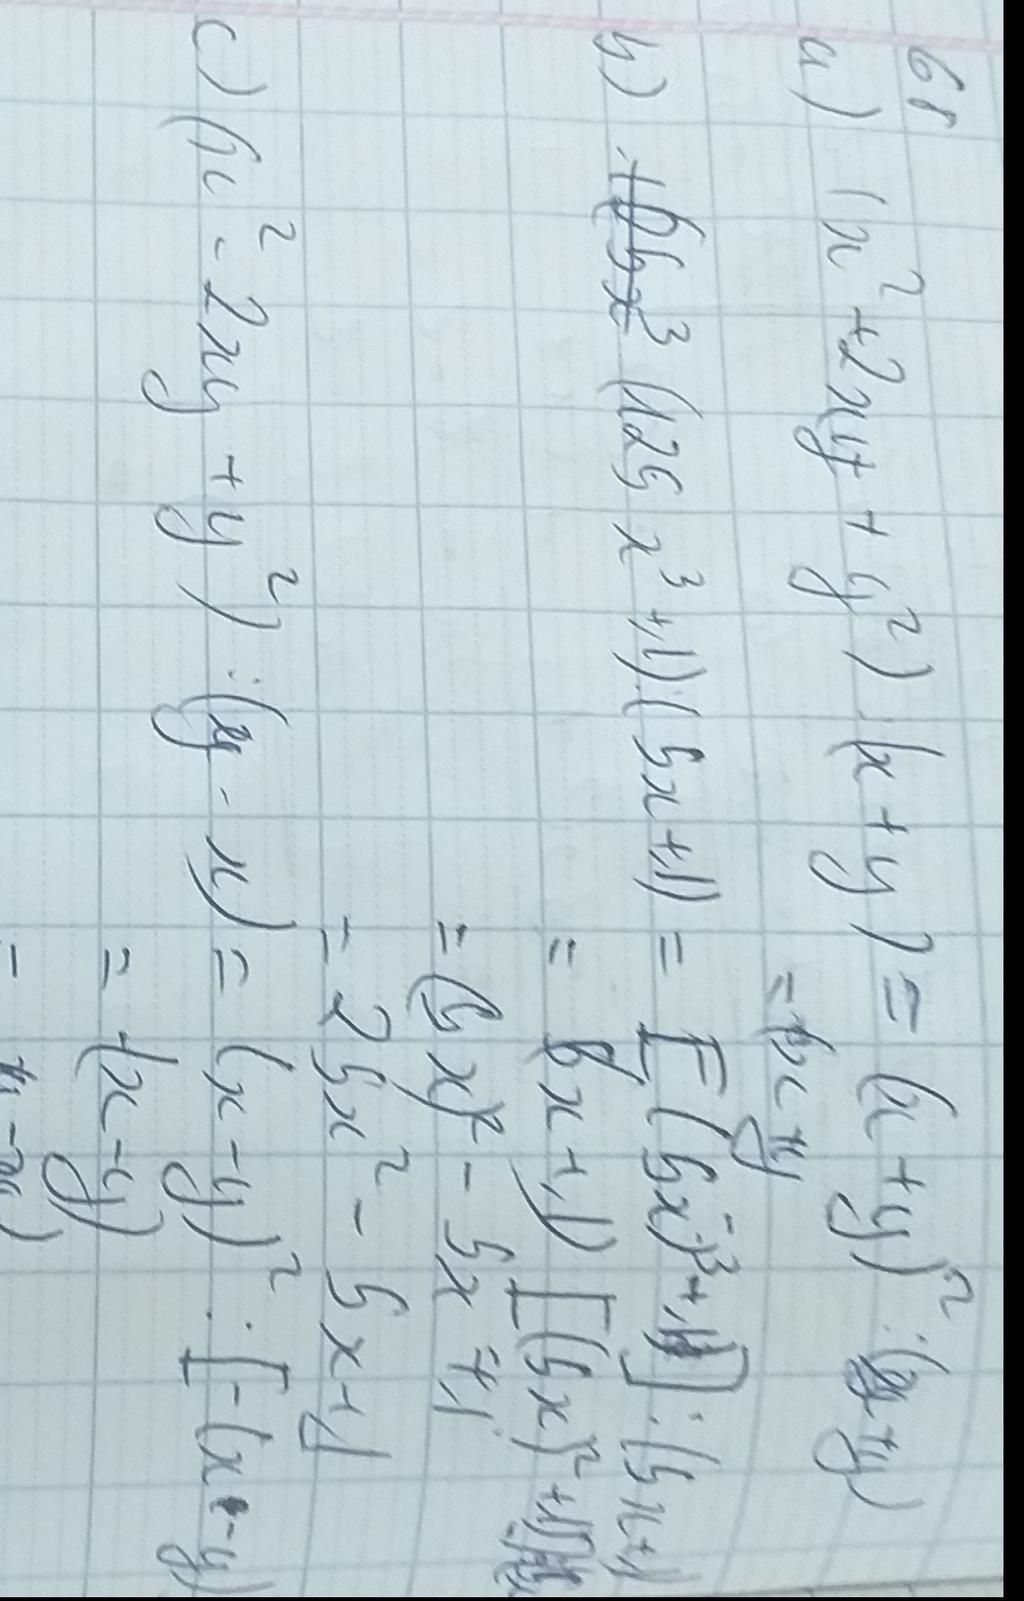 68
a) (x² + 2xy + y²) : (x + y) = (x + y)² : (x + y)
= x + y
b) (125x³ + 1) : (5x + 1) = [(5x)³ + 1] : (5x + 1)
= (5x + 1) [(5x)²
= (5x)² - 5x + 1
= 25x² - 5x + 1
c) (x² - 2xy + y²) : (y - x) = (x - y)² : [-(x - y)]
= -(x - y)
=